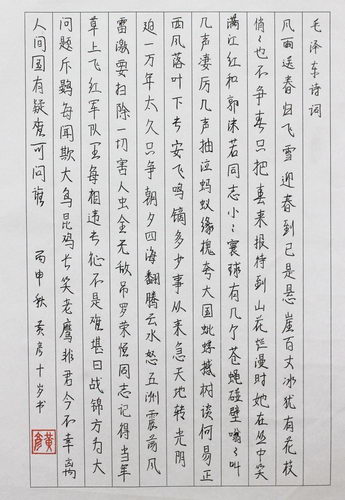 毛泽东诗词
风雨送春归飞雪迎春到已是悬崖百丈冰犹有花枝
俏〻也不争春只把春来报待到山花烂漫时她在丛中笑
满江红和郭沫若同志小〻寰球有几个苍蝇碰壁嗡〻叫
几声凄厉几声抽泣蚂蚁缘槐夸大国蚍蜉撼树谈何易正
西风落叶下长安飞鸣镝多少事从来急天地转光阴
迫一万年太久只争朝夕四海翻腾云水怒五洲震荡风
雷激要扫除一切害人虫全无敌吊罗荣桓同志记得当年
草上飞红军队里每相违长征不是难堪日战锦方为大
问题斥鷃每闻欺大鸟昆鸡长笑老鹰非君今不幸离
人间国有疑难可问谁 丙申秋黄彦十岁书
黄彦